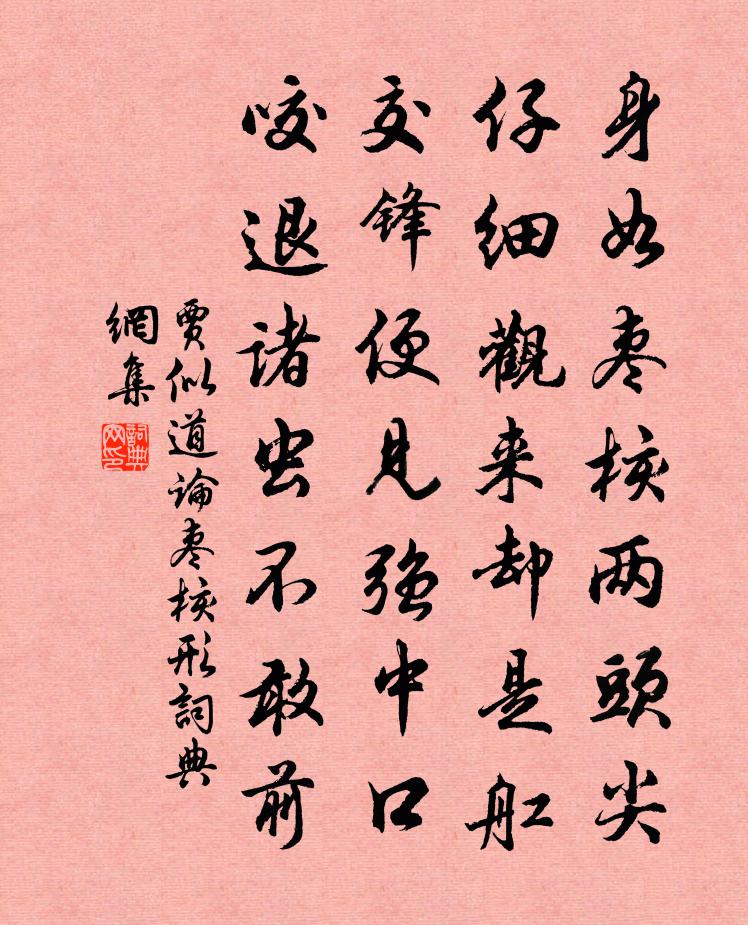 身如枣核两頭尖
仔细觀来却是舡
交锋便見強中口
咬退诸虫不敢前
賈似道論枣核形詞典
網集
詞典
网印